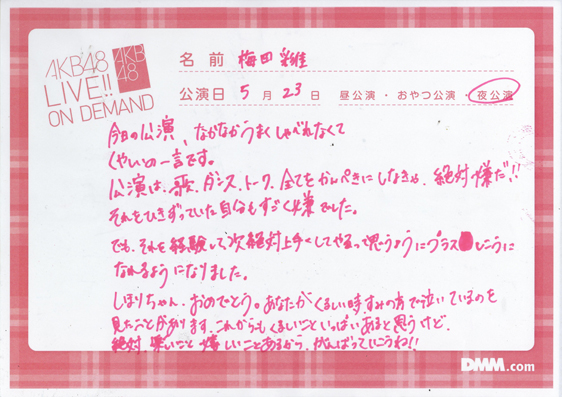 AKB48
LIVE!!
ON DEMAND
AKB
48
名前 梅田 彩佳
公演日 5月23日 昼公演・おやつ公演・夜公演
今日の公演、なかなかうまくしゃべれなくて
くやしいの一言です。
公演は、歌、ダンス、トーク、全てをかんぺきにしなきゃ、絶対嫌だ!!
それをひきずっていた自分もすごく嫌でした。
でも、それを経験して次絶対上手くしてやるって思うようにプラスしこうに
なれるようになりました。
しほりちゃん、おめでとう。あなたがくるしい時、すみの方で泣いているのを
見たことがあります。これからもくるしいこといっぱいあると思うけど、
絶対、楽しいこと嬉しいことあるから、がんばっていこうね!!
DMM.com